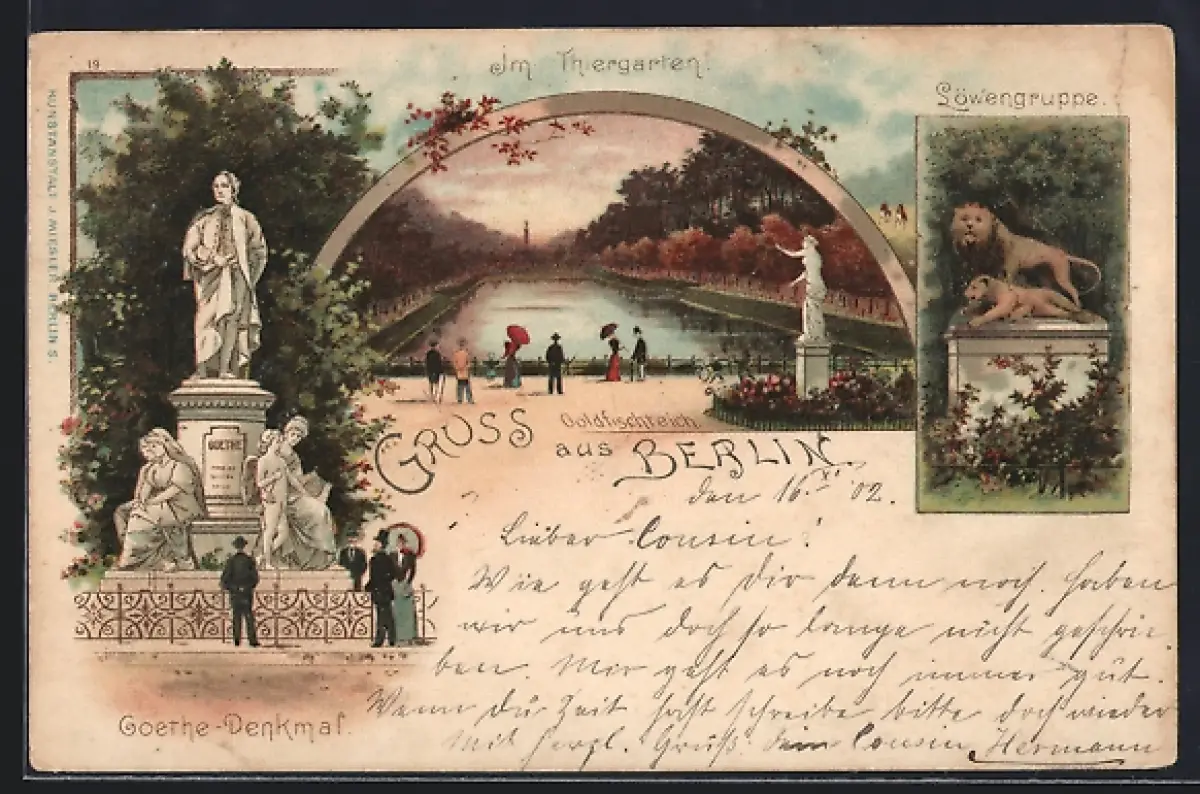 19
Im Thiergarten.
Löwengruppe.
KUNSTANSTALT J. MIESLER, BERLIN S.
GOETHE
Goldfischteich.
GRUSS aus BERLIN
den 16. 02.
Lieber Cousin!
Wie geht es Dir denn noch. haben
wir uns doch so lange nicht geschrie
ben. Mir geht es noch immer gut.
Wenn du Zeit hast schreibe bitte doch wieder
Mit herzl. Gruß. Dein Cousin Hermann
Goethe-Denkmal.